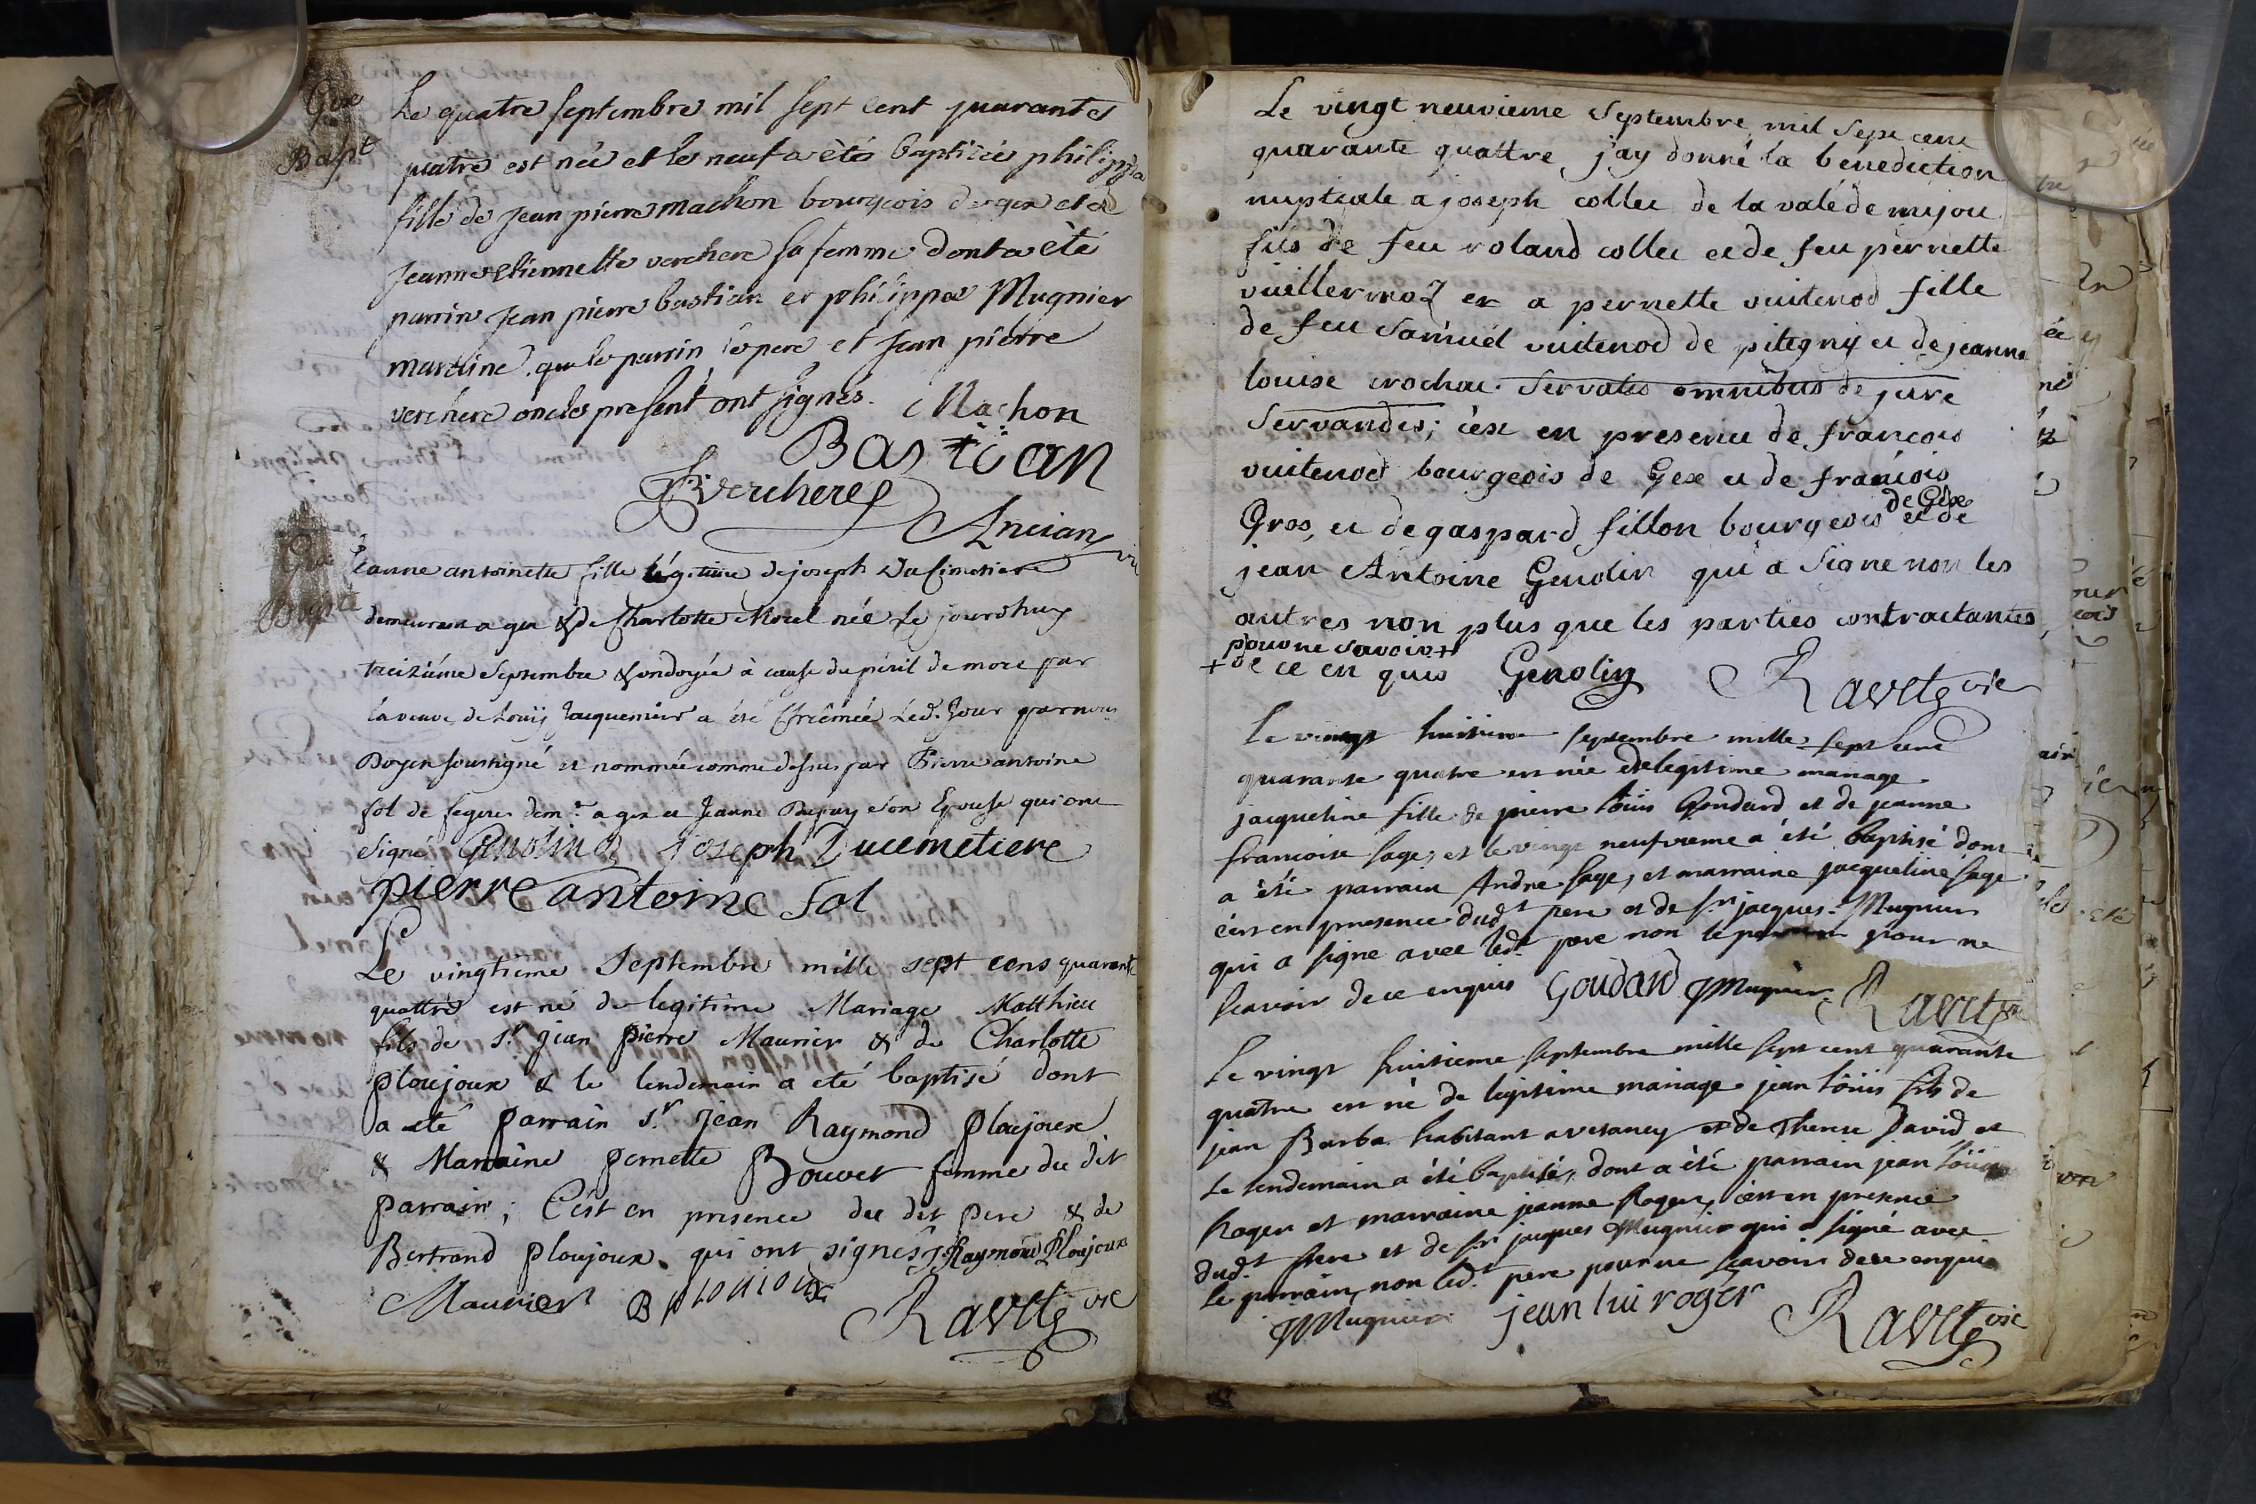 Gex
Bapt
Le quatre septembre mil sept cent quarante
quatre est née et le neuf a étés baptizée philippa
fille de Jean pierre machon bourgeois de gex et de
Jeanne etiennette verchere sa femme dont a été
parrin Jean pierre bastian et philippa Mugnier
marrine que le parrin le pere et Jean pierre
verchere oncles present ont signés. Machon
Bastian
Vercheres
Ancian
Gex
Bapt
Jeanne antoinette fille légitime de joseph Du Cimetiere
demeurant a gex & de Charlotte Morel née Le jourdhuy
treiziéme septembre & ondoyée à cause du péril de mort par
la veuve de Louis Jacquemier a été Chrêmée led. Jour par nous
Doyen soussigné et nommée comme dessus par Pierre antoine
fol de segure dem.t a gex et Jeanne Dupuy son Epouse qui ont
signé Genolin D joseph Ducemetiere
pierre antoine fol
Le vingtieme Septembre mille sept cens quarante
quattre est né de legitime Mariage Matthieu
fils de s.r jean pierre Maurier & de Charlotte
ploujoux & le lendemain a eté baptisé dont
a eté parrain s.r jean Raymond ploujoux
& Marraine pernette Bouvet femme du dit
parrain ; C'est en presence du dit pere & de
Bertrand ploujoux qui ont signés J Raymond Ploujoux
Maurier B ploujoux
Ravet vic
Le vingt neuvieme septembre mil sept cent
quarante quattre j'ay donné la benediction
nuptiale a joseph collet de la valé de mijou
fils de feu roland collet et de feu pernette
vuillermoz et a pernette vuitenod fille
de feu samuel vuitenod de pitegny et de jeanne
louise crochat servatis omnibus de jure
servandis; c'est en presence de francois
vuitenod bourgeois de Gex et de francois
Gros, et de gaspard fillon bourgeois de Gex et de
jean Antoine Genolin qui a signe non les
autres non plus que les parties contractantes
pour ne savoir +
+ de ce en quis Genolin Ravet vic
Le vingt huitieme septembre mille sept cent
quarante quatre est née de legitime mariage
jacqueline fille de pierre loüis Goudard et de jeanne
francoise sage, et le vingt neufvieme a été baptisé dont
a été parrain Andre sage, et marraine jacqueline sage
c'est en presence dud.t pere et de s.r jacques Mugnier
qui a signe avec led.t pere non le parrain pour ne
scavoir de ce enquis Goudard JMugnier Ravet vic
Le vingt huitieme septembre mille sept cent quarante
quatre est né de legitime mariage jean loüis fils de
jean Barba habitant a vesancy et de Therese David et
le lendemain a été baptisé, dont a été parrain jean loüis
Roger et marraine jeanne Roger, c'est en presence
dud.t pere et de s.r jacques Mugnier qui a signé avec
le parrain, non led.t pere pour ne scavoir de ce enquis
JMugnier jean lui roger Ravet vic